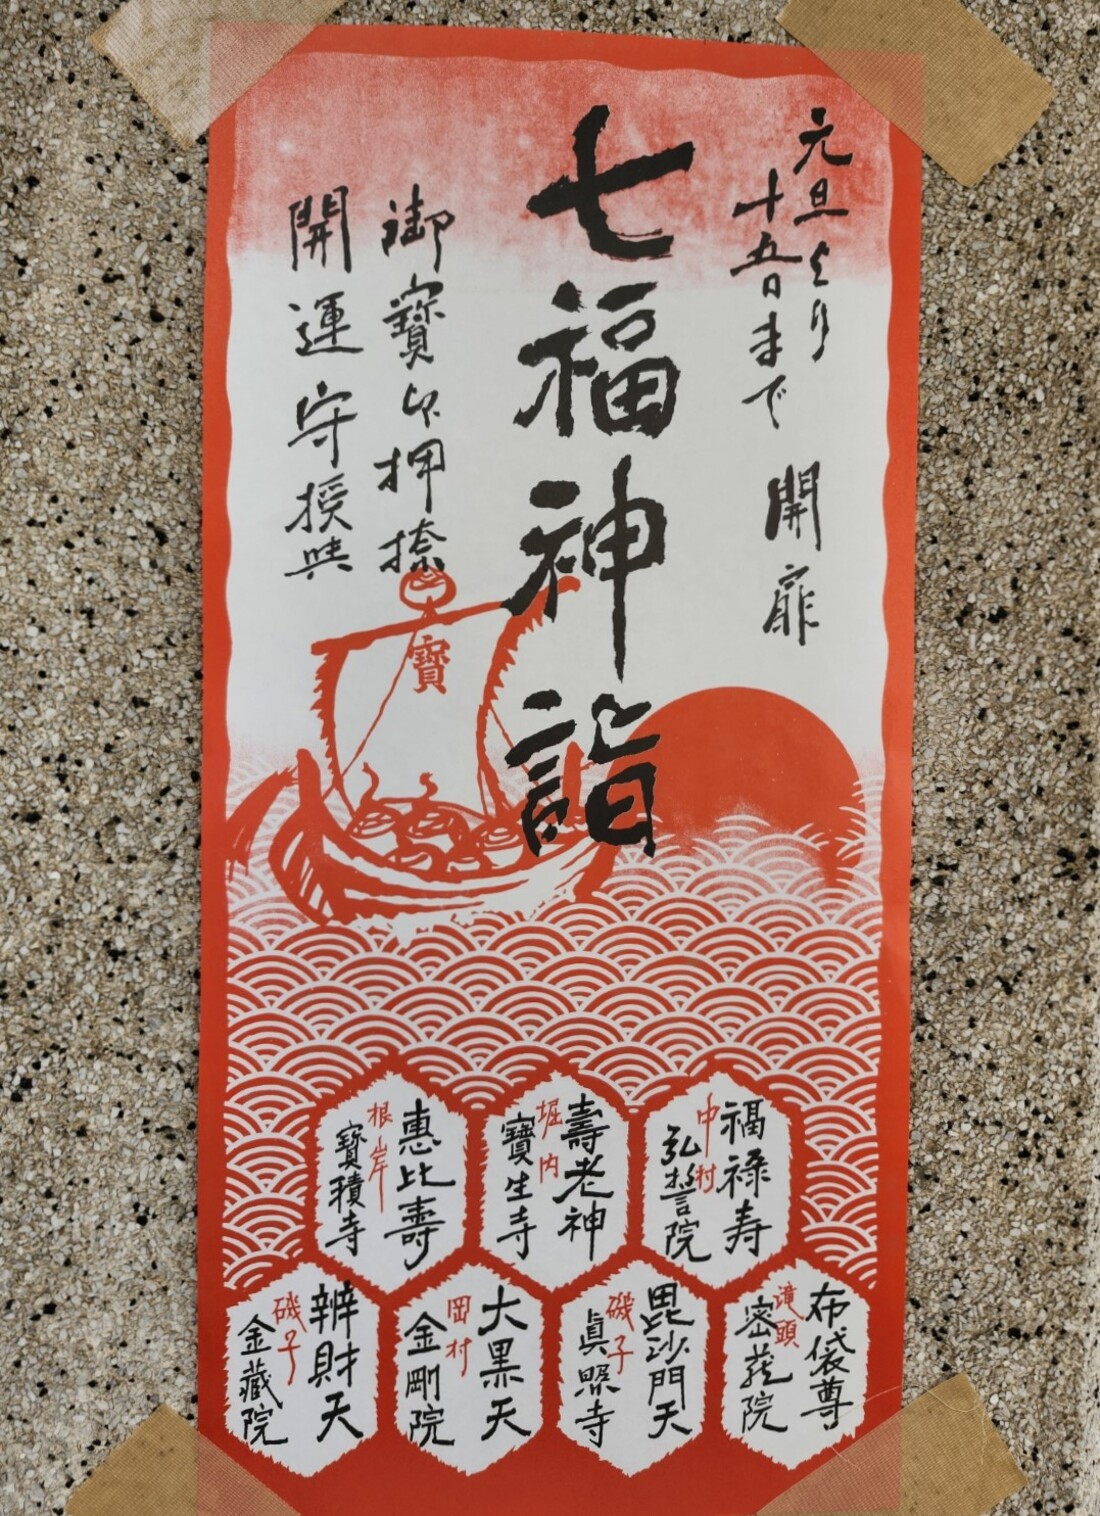 元旦より
十五日まで 開扉
七福神詣
御寶印押捺
開運守授與
寶
福禄寿
中村
弘誓院
壽老神
堀内
寶生寺
惠比壽
根岸
寶積寺
布袋尊
滝頭
密蔵院
毘沙門天
磯子
眞照寺
大黒天
岡村
金剛院
辨財天
磯子
金藏院